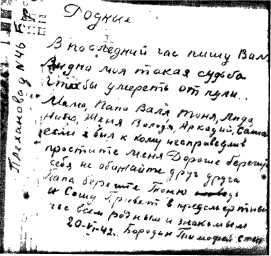 Родные
В последний час пишу Вам
Видно моя такая судьба
чтобы умереть от пули..
Мама Папа Валя Тоня, Лида
Нина, Женя Володя, Аркадий,
если я был к кому несправедлив
простите меня Дорогие берегите
себя не обижайте друг друга
Папа берегите Тоню
и Сашу Привет в предсмертный
час всем родным и знакомым
20-VI-42. Бородин Тимофей
Плеханова д N46